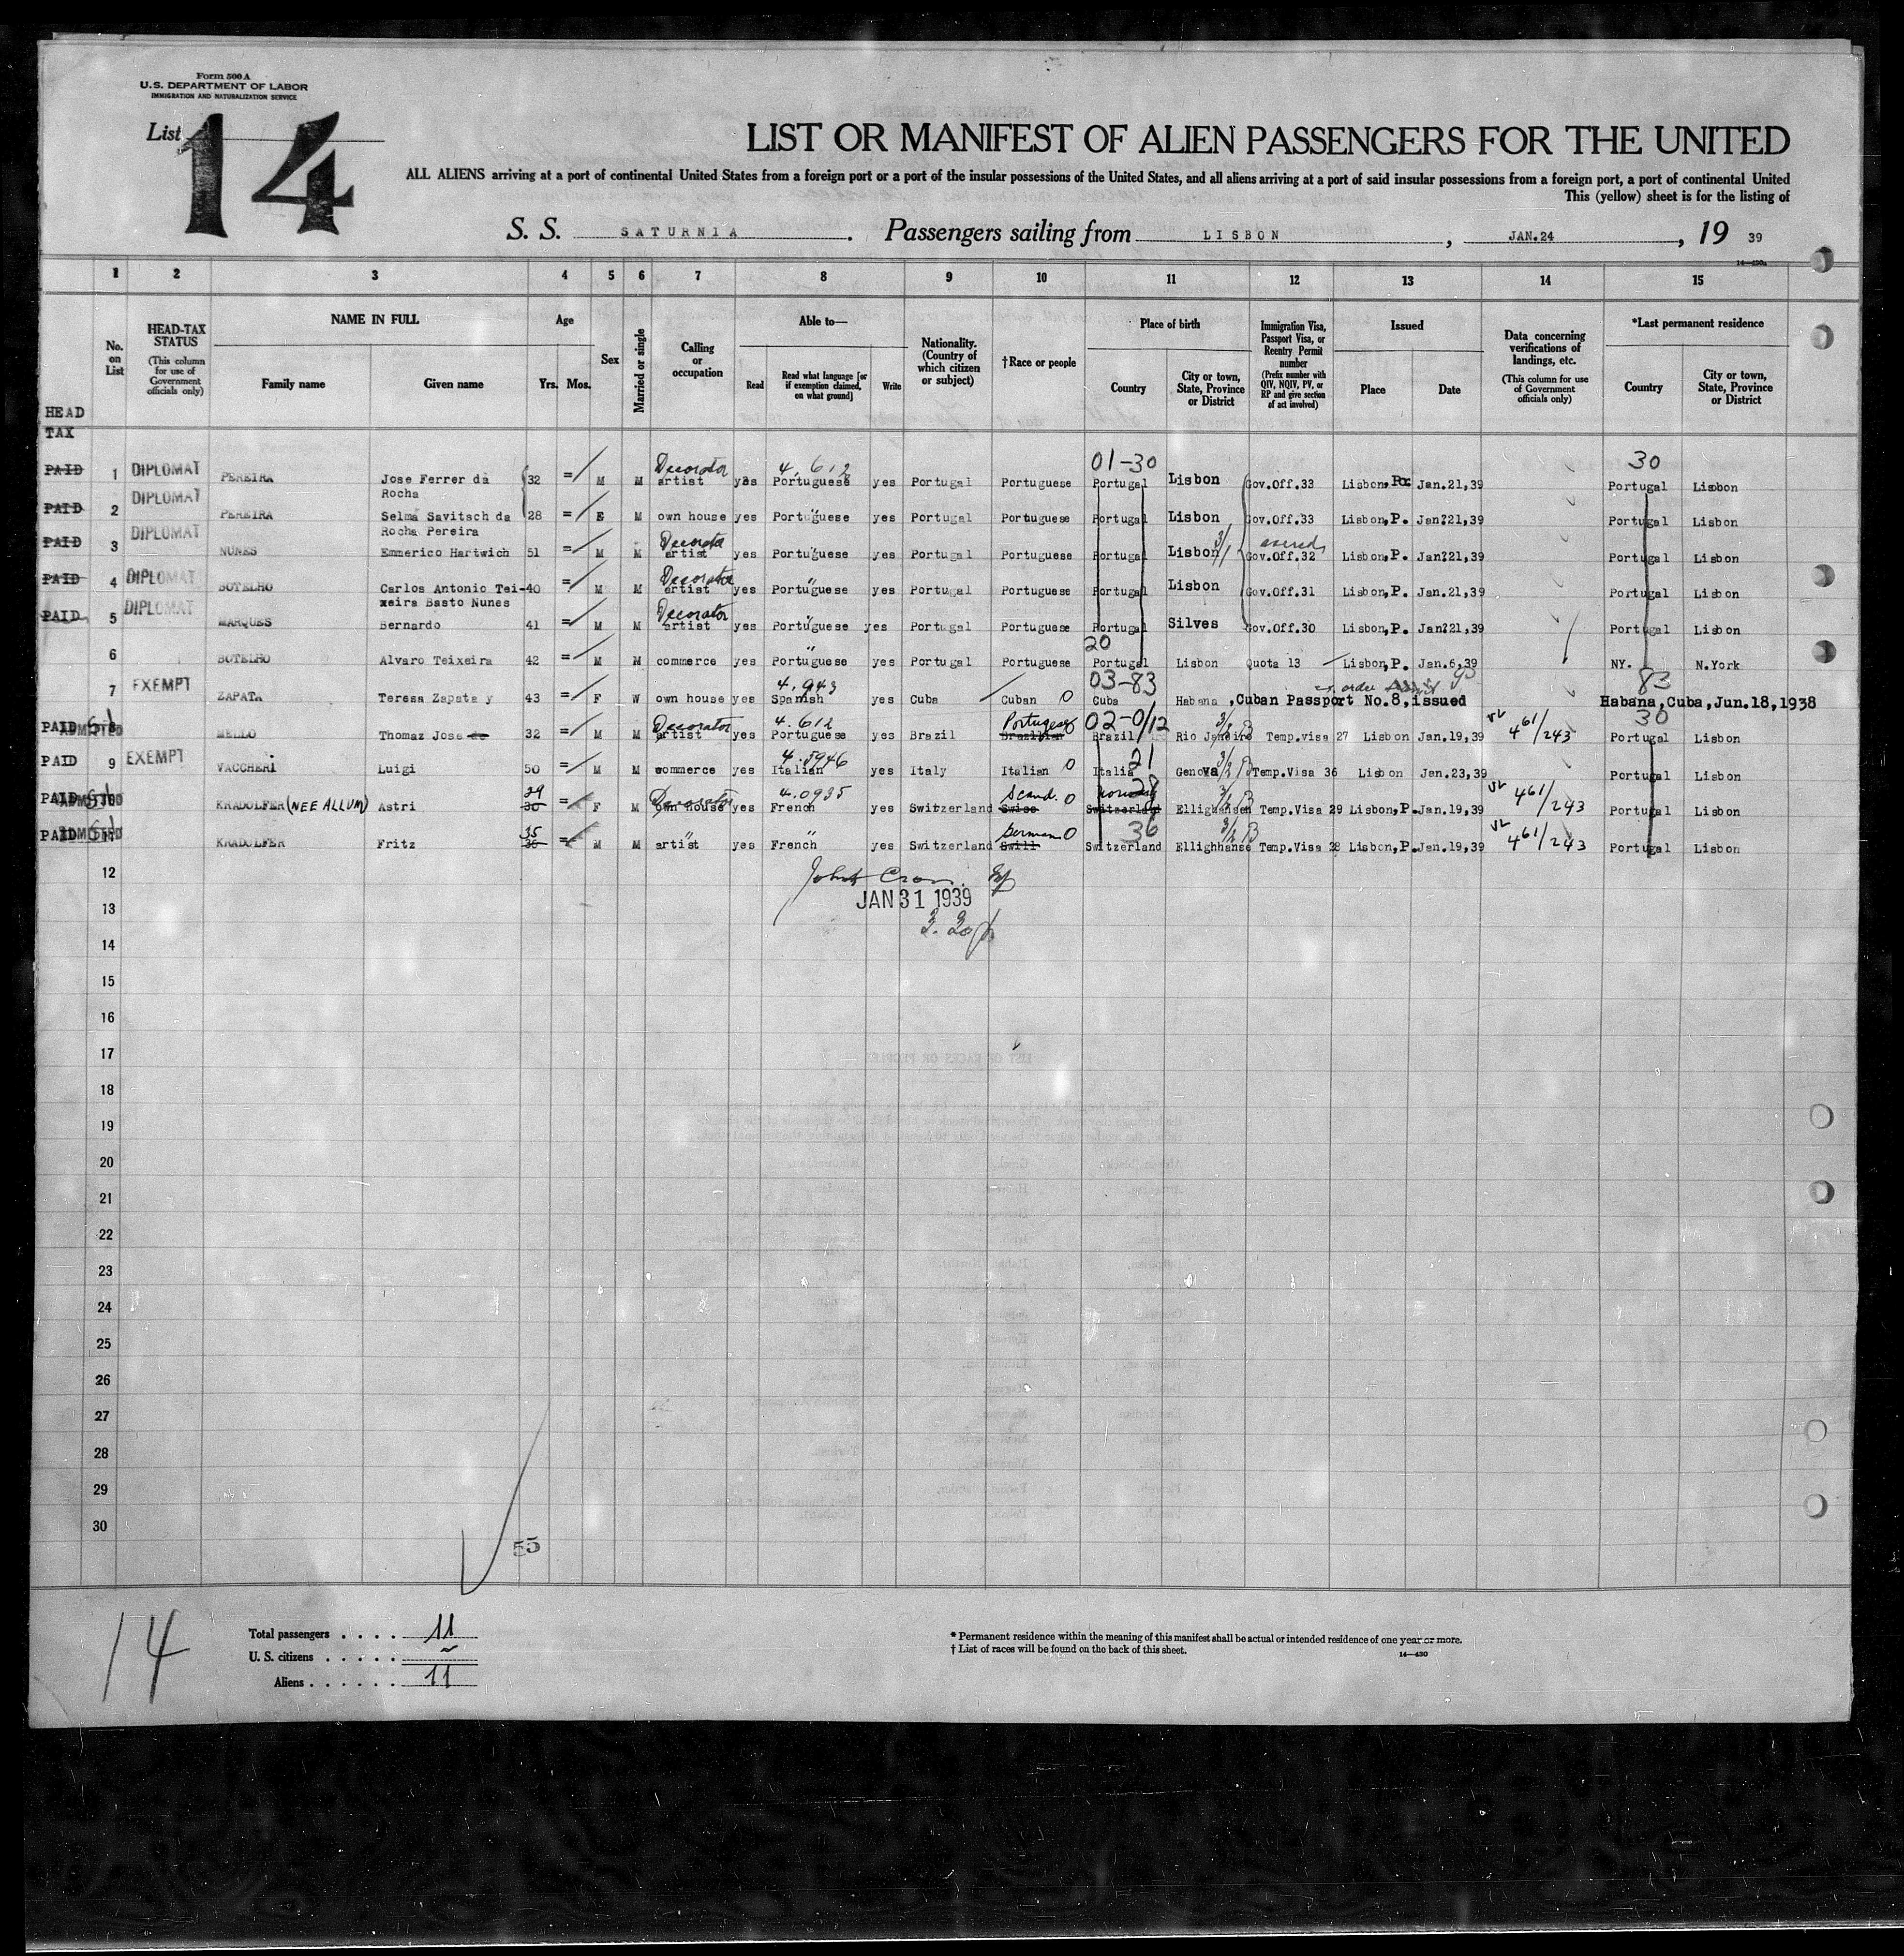 Form 500 A
U.S. DEPARTMENT OF LABOR
IMMIGRATION AND NATURALIZATION SERVICE
List 14
LIST OR MANIFEST OF ALIEN PASSENGERS FOR THE UNITED
ALL ALIENS arriving at a port of continental United States from a foreign port or a port of the insular possessions of the United States, and all aliens arriving at a port of said insular possessions from a foreign port, a port of continental United
This (yellow) sheet is for the listing of
S. S. SATURNIA. Passengers sailing from LISBON, JAN.24, 19 39
14—430a
1 2 3 4 5 6 7 8 9 10 11 12 13 14 15
No. on List
HEAD-TAX STATUS
(This column for use of Government officials only)
NAME IN FULL
Family name
Given name
Age
Yrs. Mos.
Sex
Married or single
Calling or occupation
Able to—
Read
Read what language [or if exemption claimed, on what ground]
Write
Nationality. (Country of which citizen or subject)
†Race or people
Place of birth
Country
City or town, State, Province or District
Immigration Visa, Passport Visa, or Reentry Permit number
(Prefix number with QIV, NQIV, PV, or RP and give section of act involved)
Issued
Place
Date
Data concerning verifications of landings, etc.
(This column for use of Government officials only)
*Last permanent residence
Country
City or town, State, Province or District
HEAD
TAX
Decorator 4.612 01-30 30
PAID 1 DIPLOMAT PEREIRA Jose Ferrer da Rocha 32 = M M artist yes Portuguese yes Portugal Portuguese Portugal Lisbon Gov.Off.33 Lisbon, Jan.21,39 Portugal Lisbon
PAID 2 DIPLOMAT PEREIRA Selma Savitsch da Rocha Pereira 28 = F M own house yes Portuguese yes Portugal Portuguese Portugal Lisbon Gov.Off.33 Lisbon,P. Jan.21,39 Portugal Lisbon
Decorator
PAID 3 DIPLOMAT NUNES Emmerico Hartwich 51 = M M artist yes Portuguese yes Portugal Portuguese Portugal Lisbon Gov.Off.32 Lisbon,P. Jan.21,39 Portugal Lisbon
Decorator
PAID 4 DIPLOMAT BOTELHO Carlos Antonio Teixeira Basto Nunes 40 = M M artist yes Portuguese yes Portugal Portuguese Portugal Lisbon Gov.Off.31 Lisbon,P. Jan.21,39 Portugal Lisbon
Decorator
PAID 5 DIPLOMAT MARQUES Bernardo 41 = M M artist yes Portuguese yes Portugal Portuguese Portugal Silves Gov.Off.30 Lisbon,P. Jan.21,39 Portugal Lisbon
20
6 BOTELHO Alvaro Teixeira 42 = M M commerce yes Portuguese yes Portugal Portuguese Portugal Lisbon Quota 13 Lisbon,P. Jan.6,39 NY. N.York
4.943 03-83 83
7 EXEMPT ZAPATA Teresa Zapata y 43 = F W own house yes Spanish yes Cuba Cuban 0 Cuba Habana ,Cuban Passport No.8,issued Habana,Cuba,Jun.18,1938
Decorator 4.612 Portuguese 02-0/12 3/2 B 30
PAID ADMITTED 8 MELLO Thomaz Jose de 32 = M M artist yes Portuguese yes Brazil Brazilian 0 Brazil Rio Janeiro Temp.visa 27 Lisbon Jan.19,39 461/243 Portugal Lisbon
4.5946 21 3/2 B
PAID 9 EXEMPT VACCHERI Luigi 50 = M M commerce yes Italian yes Italy Italian 0 Italia Genova Temp.Visa 36 Lisbon Jan.23,39 Portugal Lisbon
29 Decorator 4.0935 Scand. 28
PAID ADMITTED 10 KRADOLFER (NEE ALLUM) Astri 30 = F M own house yes French yes Switzerland Swiss 0 Switzerland Ellighansen Temp.Visa 29 Lisbon,P. Jan.19,39 461/243 Portugal Lisbon
35 German 36 3/2 B
PAID ADMITTED 11 KRADOLFER Fritz 36 = M M artist yes French yes Switzerland Swill 0 Switzerland Ellighhanse Temp.Visa 28 Lisbon,P. Jan.19,39 461/243 Portugal Lisbon
12
JAN 31 1939
13
14
15
16
17
18
19
20
21
22
23
24
25
26
27
28
29
30
55
14
Total passengers . . . . 11
U. S. citizens . . . . . ~
Aliens . . . . . . 11
* Permanent residence within the meaning of this manifest shall be actual or intended residence of one year or more.
† List of races will be found on the back of this sheet.
14—430